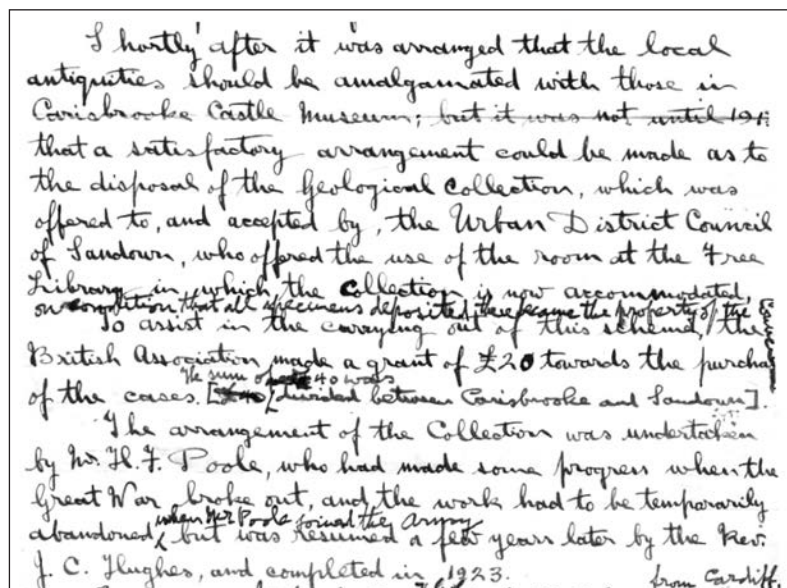 Shortly after it was arranged that the local
antiquities should be amalgamated with those in
Carisbrooke Castle Museum; but it was not until 191
that a satisfactory arrangement could be made as to
the disposal of the Geological Collection, which was
offered to, and accepted by, the Urban District Council
of Sandown, who offered the use of the room at the Free
Library in which the Collection is now accommodated,
on condition that all specimens deposited there became the property of the Council
To assist in the carrying out of this scheme, the
British Association made a grant of £20 towards the purcha
The sum of £40 was
of the cases. [divided between Carisbrooke and Sandown].
The arrangement of the Collection was undertaken
by Mr. H. F. Poole, who had made some progress when the
Great War broke out, and the work had to be temporarily
when Mr Poole joined the Army
abandoned, but was resumed a few years later by the Rev.
J. C. Hughes, and completed in 1923. from Cardiff.